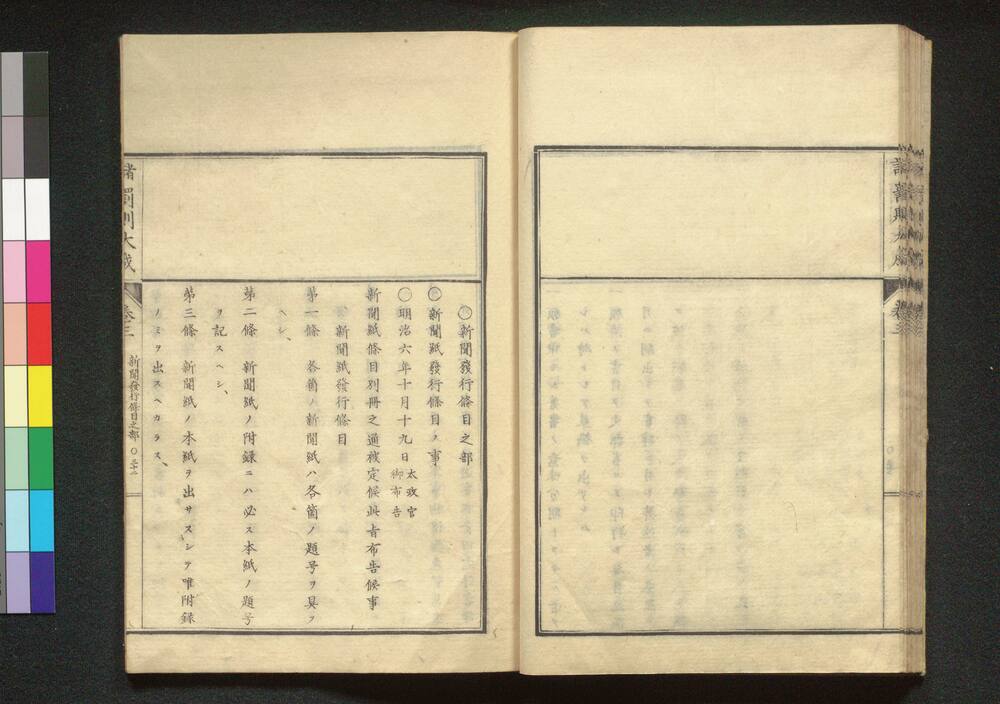 新聞發行條目之部
新聞紙發行條目ノ事
〇明治六年十月十九日 太政官御布告
新聞紙條目別冊之通被定候此旨布告候事
新聞紙發行條目
第一條 各箇ノ新聞紙ハ各箇ノ題号ヲ具フ
ヘシ、
第二條 新聞紙ノ附録ニハ必ス本紙ノ題号
ヲ記スヘシ、
第三條 新聞紙ノ本紙ヲ出サスシテ唯附録
ノミヲ出スヘカラス、
諸罰則大成
卷三
新聞發行條目之部